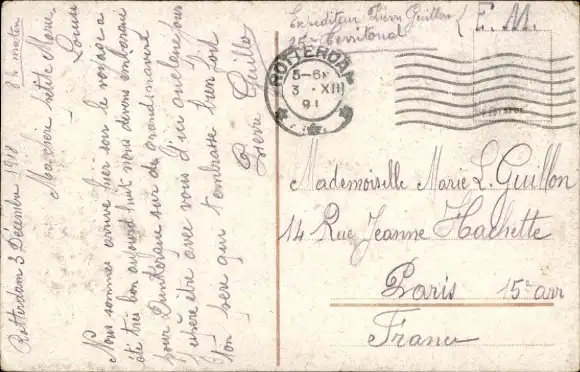 Rotterdam 3 Décembre 1918 8h matin
Ma chère petite Marie Louise
Nous sommes arrivé hier soir le voyage a
été très bon aujourd'huit nous devons embarqué
pour Dunkerque sur de grands navires
J'espère être avec vous d'ici quelque jours
Ton père qui t'embrasse bien fort
Pierre Guillon
Expéditeur Pierre Guillon
Territorial
F. M.
ROTTERDAM
5-6N
3 XII
91
Mademoiselle Marie L. Guillon
14 Rue Jeanne Hachette
Paris 15e arr
France